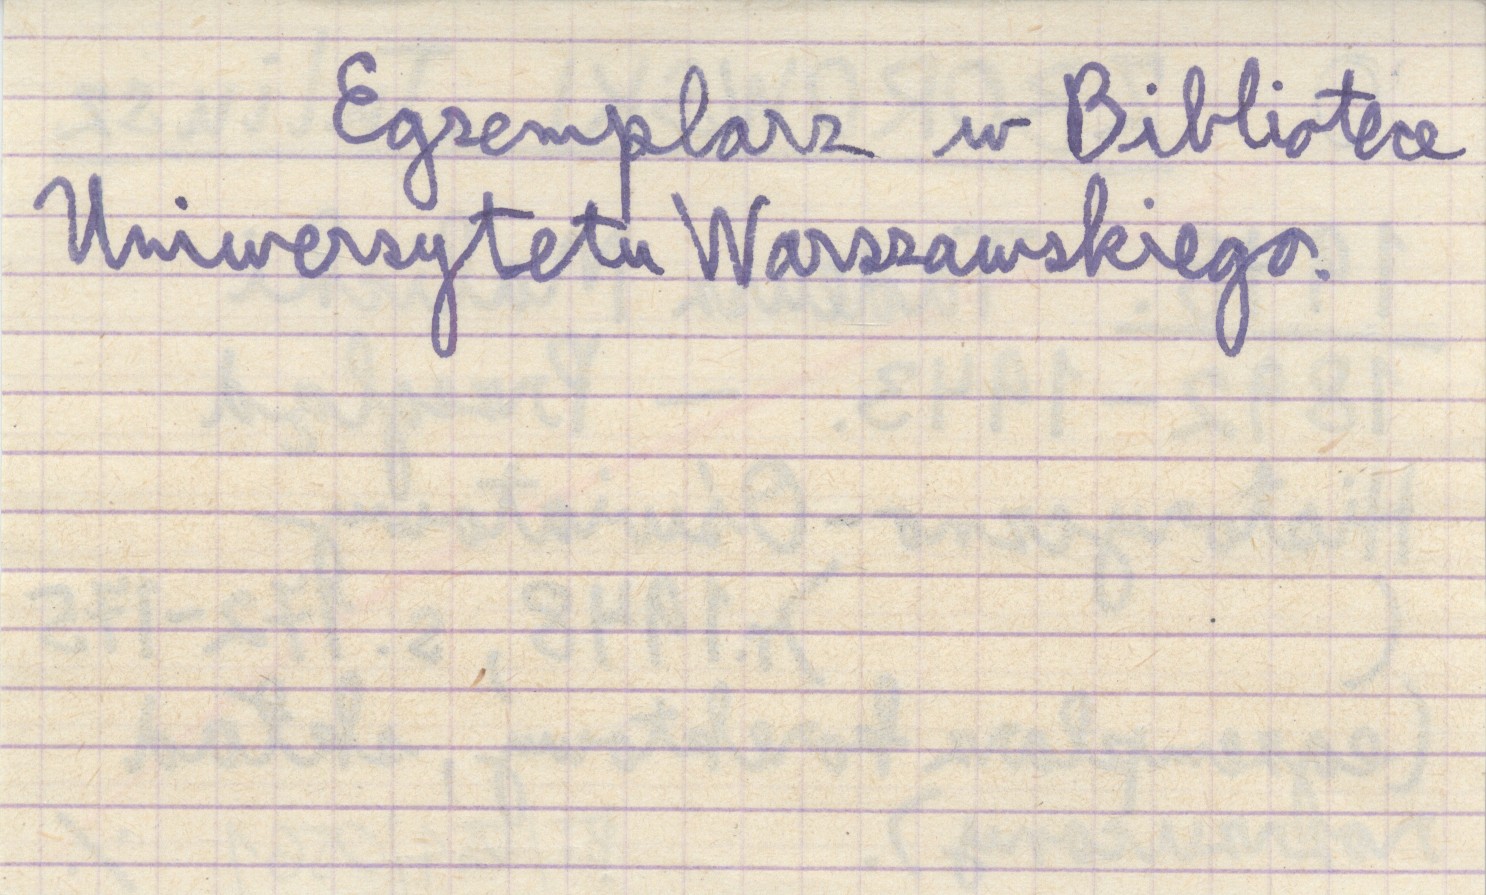 Egzemplarz w Bibliotece
Uniwersytetu Warszawskiego.